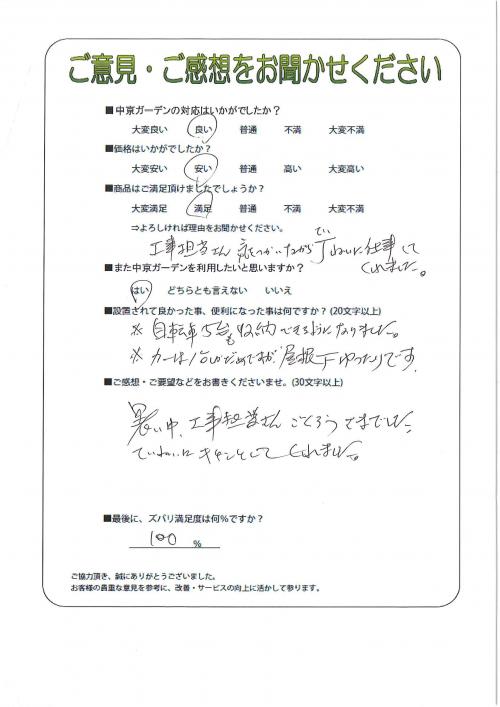 ご意見・ご感想をお聞かせください
■中京ガーデンの対応はいかがでしたか？
大変良い 良い 普通 不満 大変不満
■価格はいかがでしたか？
大変安い 安い 普通 高い 大変高い
■商品はご満足頂けましたでしょうか？
大変満足 満足 普通 不満 大変不満
⇒よろしければ理由をお聞かせください。
工事担当さん 気をつかいながら 丁ねいに仕事して
くれました。
■また中京ガーデンを利用したいと思いますか？
はい どちらとも言えない いいえ
■設置されて良かった事、便利になった事は何ですか？(20文字以上)
※ 自転車5台も収納できるようになりました。
※ カーは1台しかだめですが 屋根下ゆったりです。
■ご感想・ご要望などをお書きくださいませ。(30文字以上)
暑い中、工事担当さん ごくろうさまでした。
ていねいにキチンとして くれました。
■最後に、ズバリ満足度は何％ですか？
100 ％
ご協力頂き、誠にありがとうございました。
お客様の貴重な意見を参考に、改善・サービスの向上に活かして参ります。